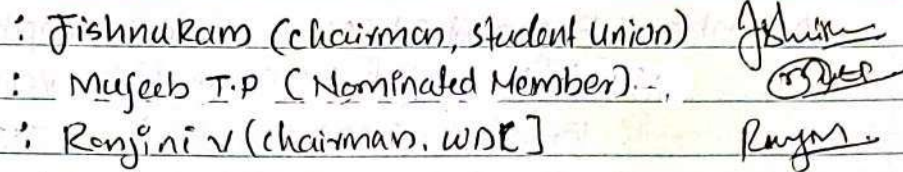 : JishnuRam (chairman, student union)
: Mujeeb T.P (Nominated Member)
: Renjini V (chairman. WDC]